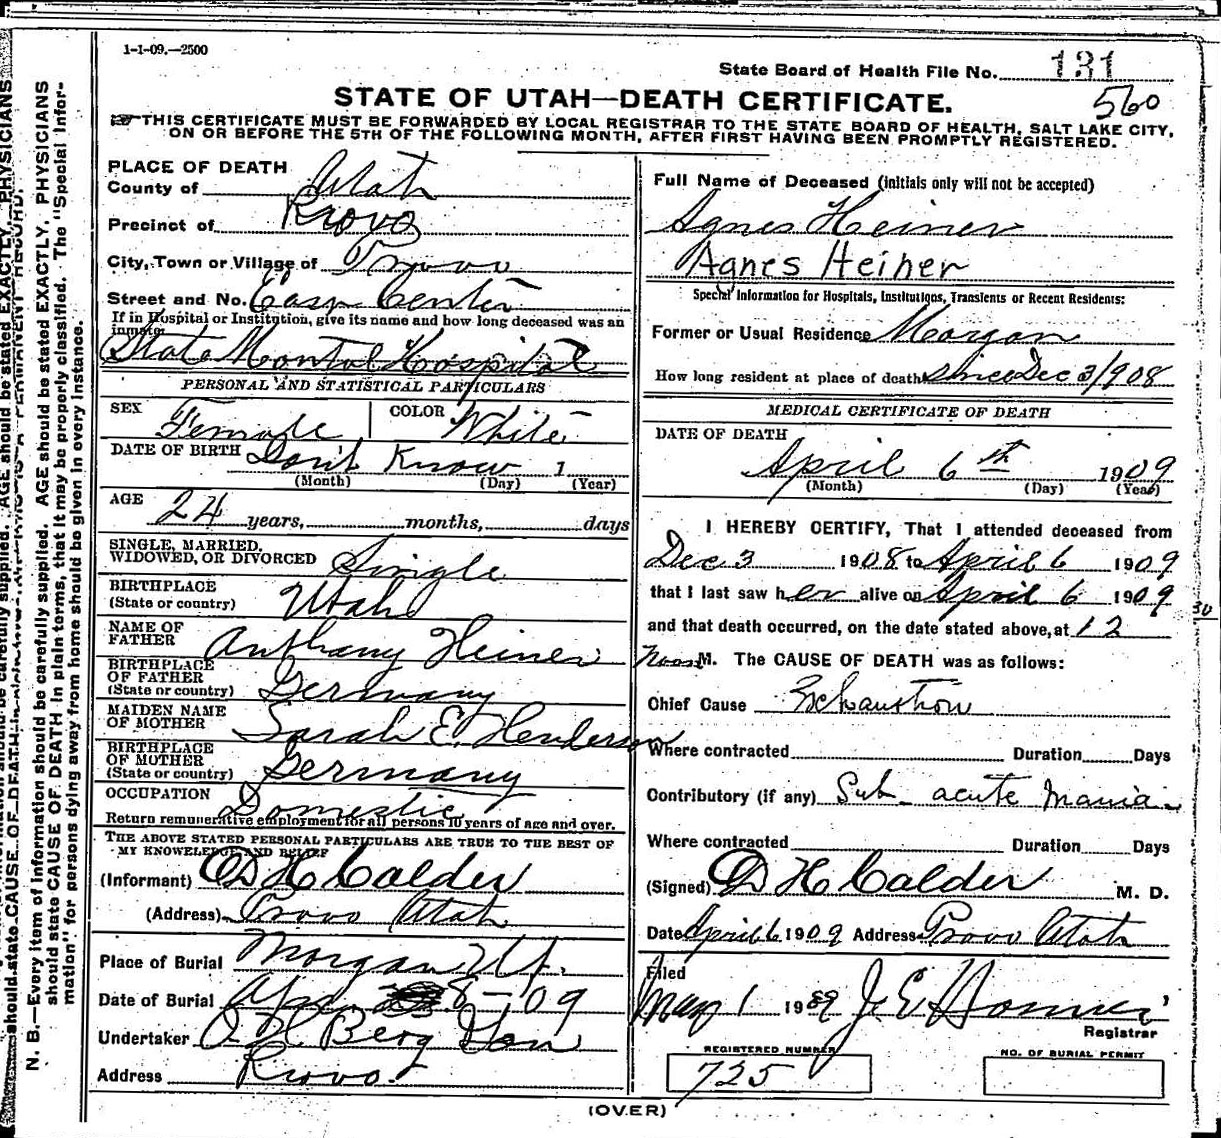 1-1-09.—2500
State Board of Health File No. 131
560
STATE OF UTAH—DEATH CERTIFICATE.
THIS CERTIFICATE MUST BE FORWARDED BY LOCAL REGISTRAR TO THE STATE BOARD OF HEALTH, SALT LAKE CITY,
ON OR BEFORE THE 5TH OF THE FOLLOWING MONTH, AFTER FIRST HAVING BEEN PROMPTLY REGISTERED.
PLACE OF DEATH
County of Utah
Precinct of Provo
City, Town or Village of Provo
Street and No. East Center
If in Hospital or Institution, give its name and how long deceased was an
inmate
State Mental Hospital
PERSONAL AND STATISTICAL PARTICULARS
SEX Female COLOR White
DATE OF BIRTH Don't Know 1
(Month) (Day) (Year)
AGE 24 years, months, days
SINGLE, MARRIED,
WIDOWED, OR DIVORCED Single
BIRTHPLACE
(State or country) Utah
NAME OF
FATHER Anthany Heiner
BIRTHPLACE
OF FATHER
(State or country) Germany
MAIDEN NAME
OF MOTHER Sarah E. Henderson
BIRTHPLACE
OF MOTHER
(State or country) Germany
OCCUPATION Domestic
Return remunerative employment for all persons 10 years of age and over.
THE ABOVE STATED PERSONAL PARTICULARS ARE TRUE TO THE BEST OF
MY KNOWELEDGE AND BELIEF
(Informant) D H Calder
(Address) Provo Utah
Place of Burial Morgan Ut.
Date of Burial Apr. 8-09
Undertaker Berg
Address Provo.
Full Name of Deceased (initials only will not be accepted)
Agnes Heiner
Agnes Heiner
Special Information for Hospitals, Institutions, Transients or Recent Residents:
Former or Usual Residence Morgan
How long resident at place of death since Dec 3/908
MEDICAL CERTIFICATE OF DEATH
DATE OF DEATH
April 6th 1909
(Month) (Day) (Year)
I HEREBY CERTIFY, That I attended deceased from
Dec 3 1908 to April 6 1909
that I last saw her alive on April 6 1909
30
and that death occurred, on the date stated above, at 12
Noon M. The CAUSE OF DEATH was as follows:
Chief Cause Exhaustion
Where contracted Duration Days
Contributory (if any) Sub-acute Mania
Where contracted Duration Days
(Signed) D H Calder M. D.
Date April 6 1909 Address Provo Utah
Filed
May 1 1909 J. E. Homer
Registrar
REGISTERED NUMBER
725
NO. OF BURIAL PERMIT
(OVER)
N. B.—Every item of information should be carefully supplied. AGE should be stated EXACTLY, PHYSICIANS
should state CAUSE OF DEATH in plain terms, that it may be properly classified. The "Special Infor-
mation" for persons dying away from home should be given in every instance.